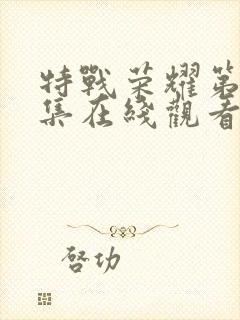 特戰荣耀第
集在綫觀看
啓功